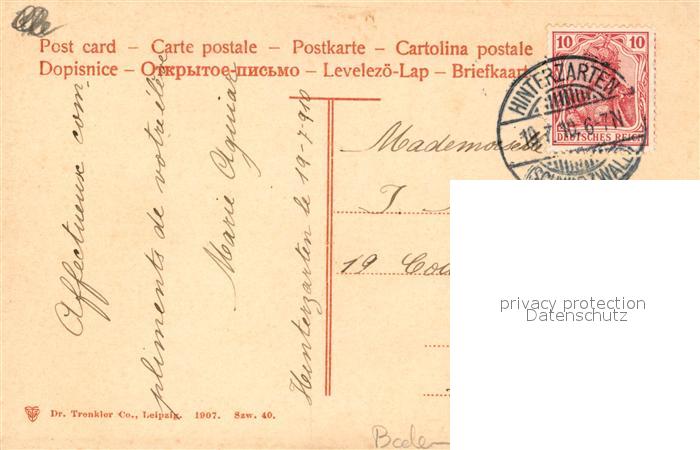 Post card – Carte postale – Postkarte – Cartolina postale
Dopisnice – Открытое-письмо – Levelező-Lap – Briefkaart
10 10
DEUTSCHES REICH
HINTERZARTEN
19.7.10.6-7N
(SCHWARZWALD)
Affectueux com-
pliments de votre élève
Marie
Hinterzarten le 19-7-910
Mademoiselle
J
19
privacy protection
Datenschutz
Dr. Trenkler Co., Leipzig. 1907. Szw. 40.
Baden